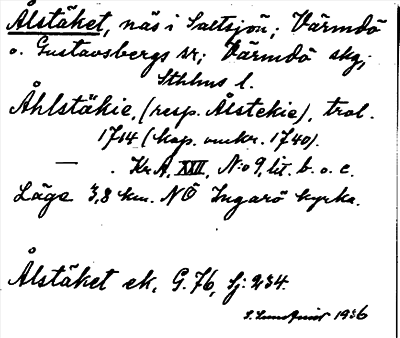 Ålstäket, näs i Saltsjön; Värmdö
o. Gustavsbergs sn; Värmdö skg;
Sthlms l.
Åhlstäkie, (resp. Ålstekie), trol.
1714 (kop. omkr. 1740).
— . KrA, XXII, N:o 9, lit. b. o. c.
Läge 3,8 km. NÖ Ingarö kyrka.
Ålstäket ek, G. 76, Sj: 234.
1936